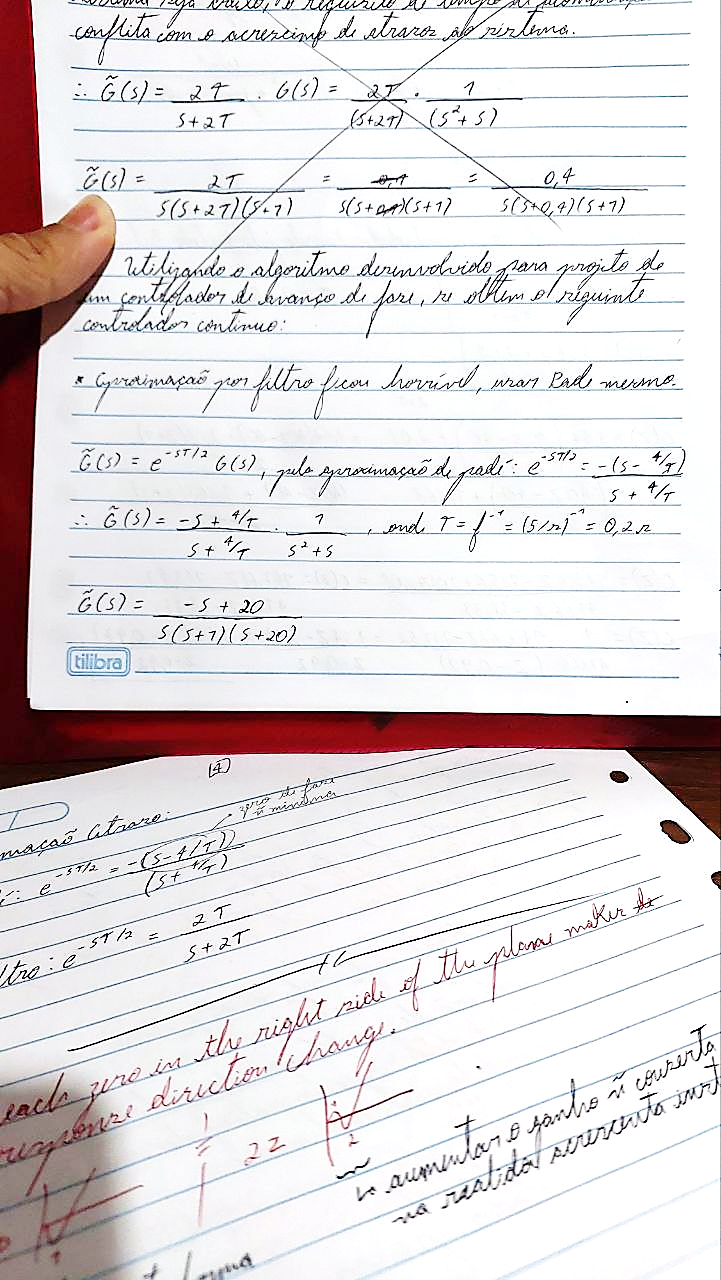 conflita com o acrescimo de atraroz ao sistema.
∴ G̃(s) = 2T/(s+2T) · G(s) = 2T/(s+2T) · 1/(s²+s)
G̃(s) = 2T/(s(s+2T)(s+1)) = 0,4/(s(s+0,4)(s+1)) = 0,4/(s(s+0,4)(s+1))
Utilizando o algoritmo desenvolvido para projeto de
um controlador de avanço de fase, se obtem o seguinte
controlador continuo:
* Aproximação por filtro ficou horrível, usar Pade mesmo.
G̃(s) = e^(-sT/2) G(s), pela aproximação de padé: e^(-sT/2) = -(s - 4/T)/(s + 4/T)
∴ G̃(s) = (-s + 4/T)/(s + 4/T) · 1/(s²+s), onde T = f⁻¹ = (5/s)⁻¹ = 0,2s
G̃(s) = (-s + 20)/(s(s+1)(s+20))
tilibra
4
zero de fase
ñ minima
mação Atraso:
e^(-sT/2) = -(s-4/T))/(s+4/T)
ltro: e^(-sT/2) = 2T/(s+2T)
each zero in the right side of the plane maker
response direction change.
1
2Z
2
aumentar o ganho ñ conserta
na realida acrescenta